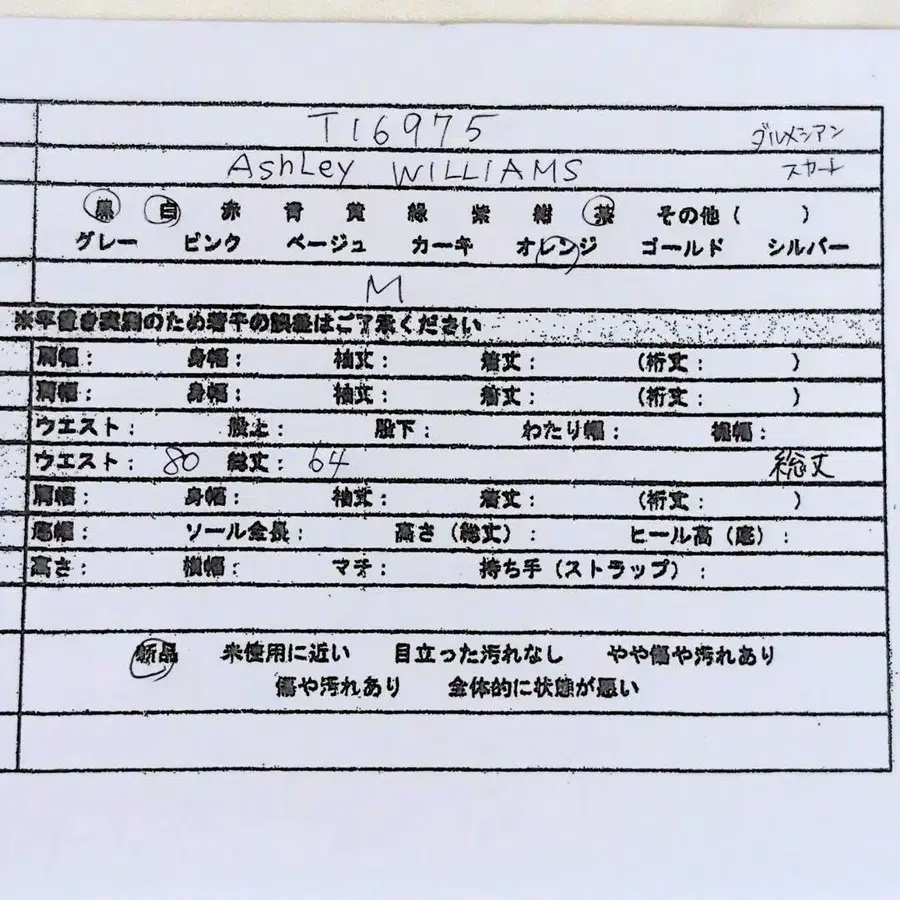 T16975 ダルメシアン
Ashley WILLIAMS スカート
黒 白 赤 青 黄 緑 紫 紺 茶 その他( )
グレー ピンク ベージュ カーキ オレンジ ゴールド シルバー
M
※平置き実測のため若干の誤差はご了承ください
肩幅: 身幅: 袖丈: 着丈: (裄丈: )
肩幅: 身幅: 袖丈: 着丈: (裄丈: )
ウエスト: 股上: 股下: わたり幅: 裾幅:
ウエスト: 80 総丈: 64 総丈
肩幅: 身幅: 袖丈: 着丈: (裄丈: )
底幅: ソール全長: 高さ(総丈): ヒール高(底):
高さ: 横幅: マチ: 持ち手(ストラップ):
新品 未使用に近い 目立った汚れなし やや傷や汚れあり
傷や汚れあり 全体的に状態が悪い